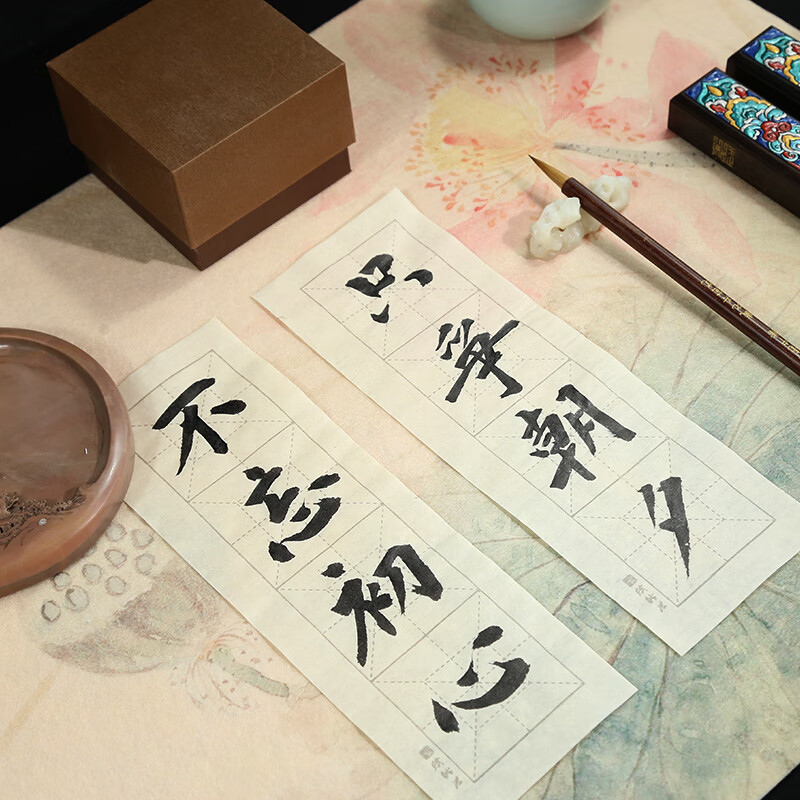 只争朝夕
不忘初心